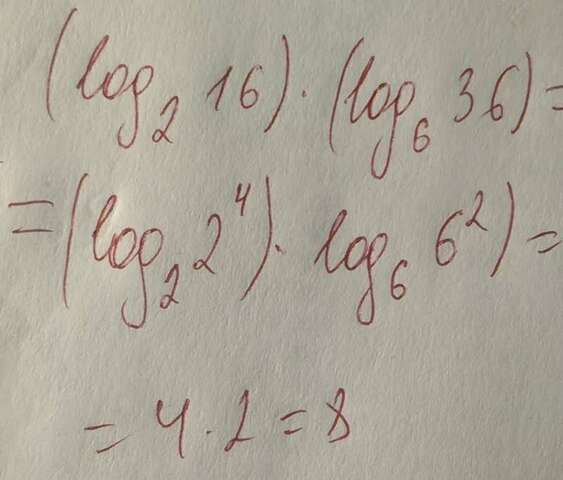 (log₂ 16) · (log₆ 36) =
= (log₂ 2⁴) · log₆ 6²) =
= 4 · 2 = 8